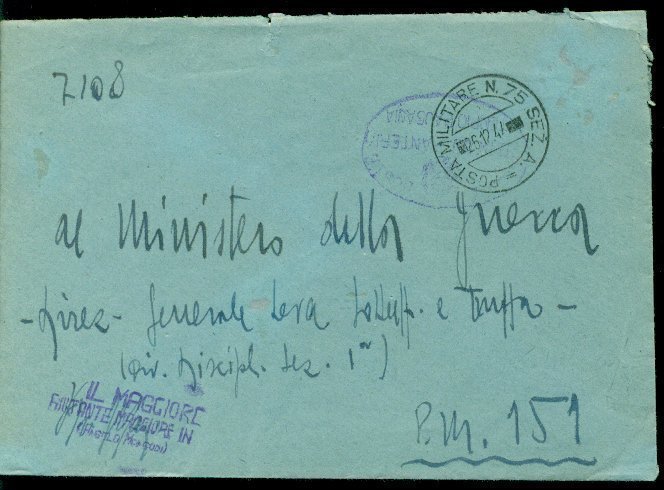 7108
POSTA MILITARE N. 75 SEZ. A.
26.12.41
al Ministero della Guerra
- Direz. Generale Leva Sottuff. e Truppa -
(Div. Discipl. Sez. 1ª)
IL MAGGIORE
AIUTANTE MAGGIORE IN
P.M. 151